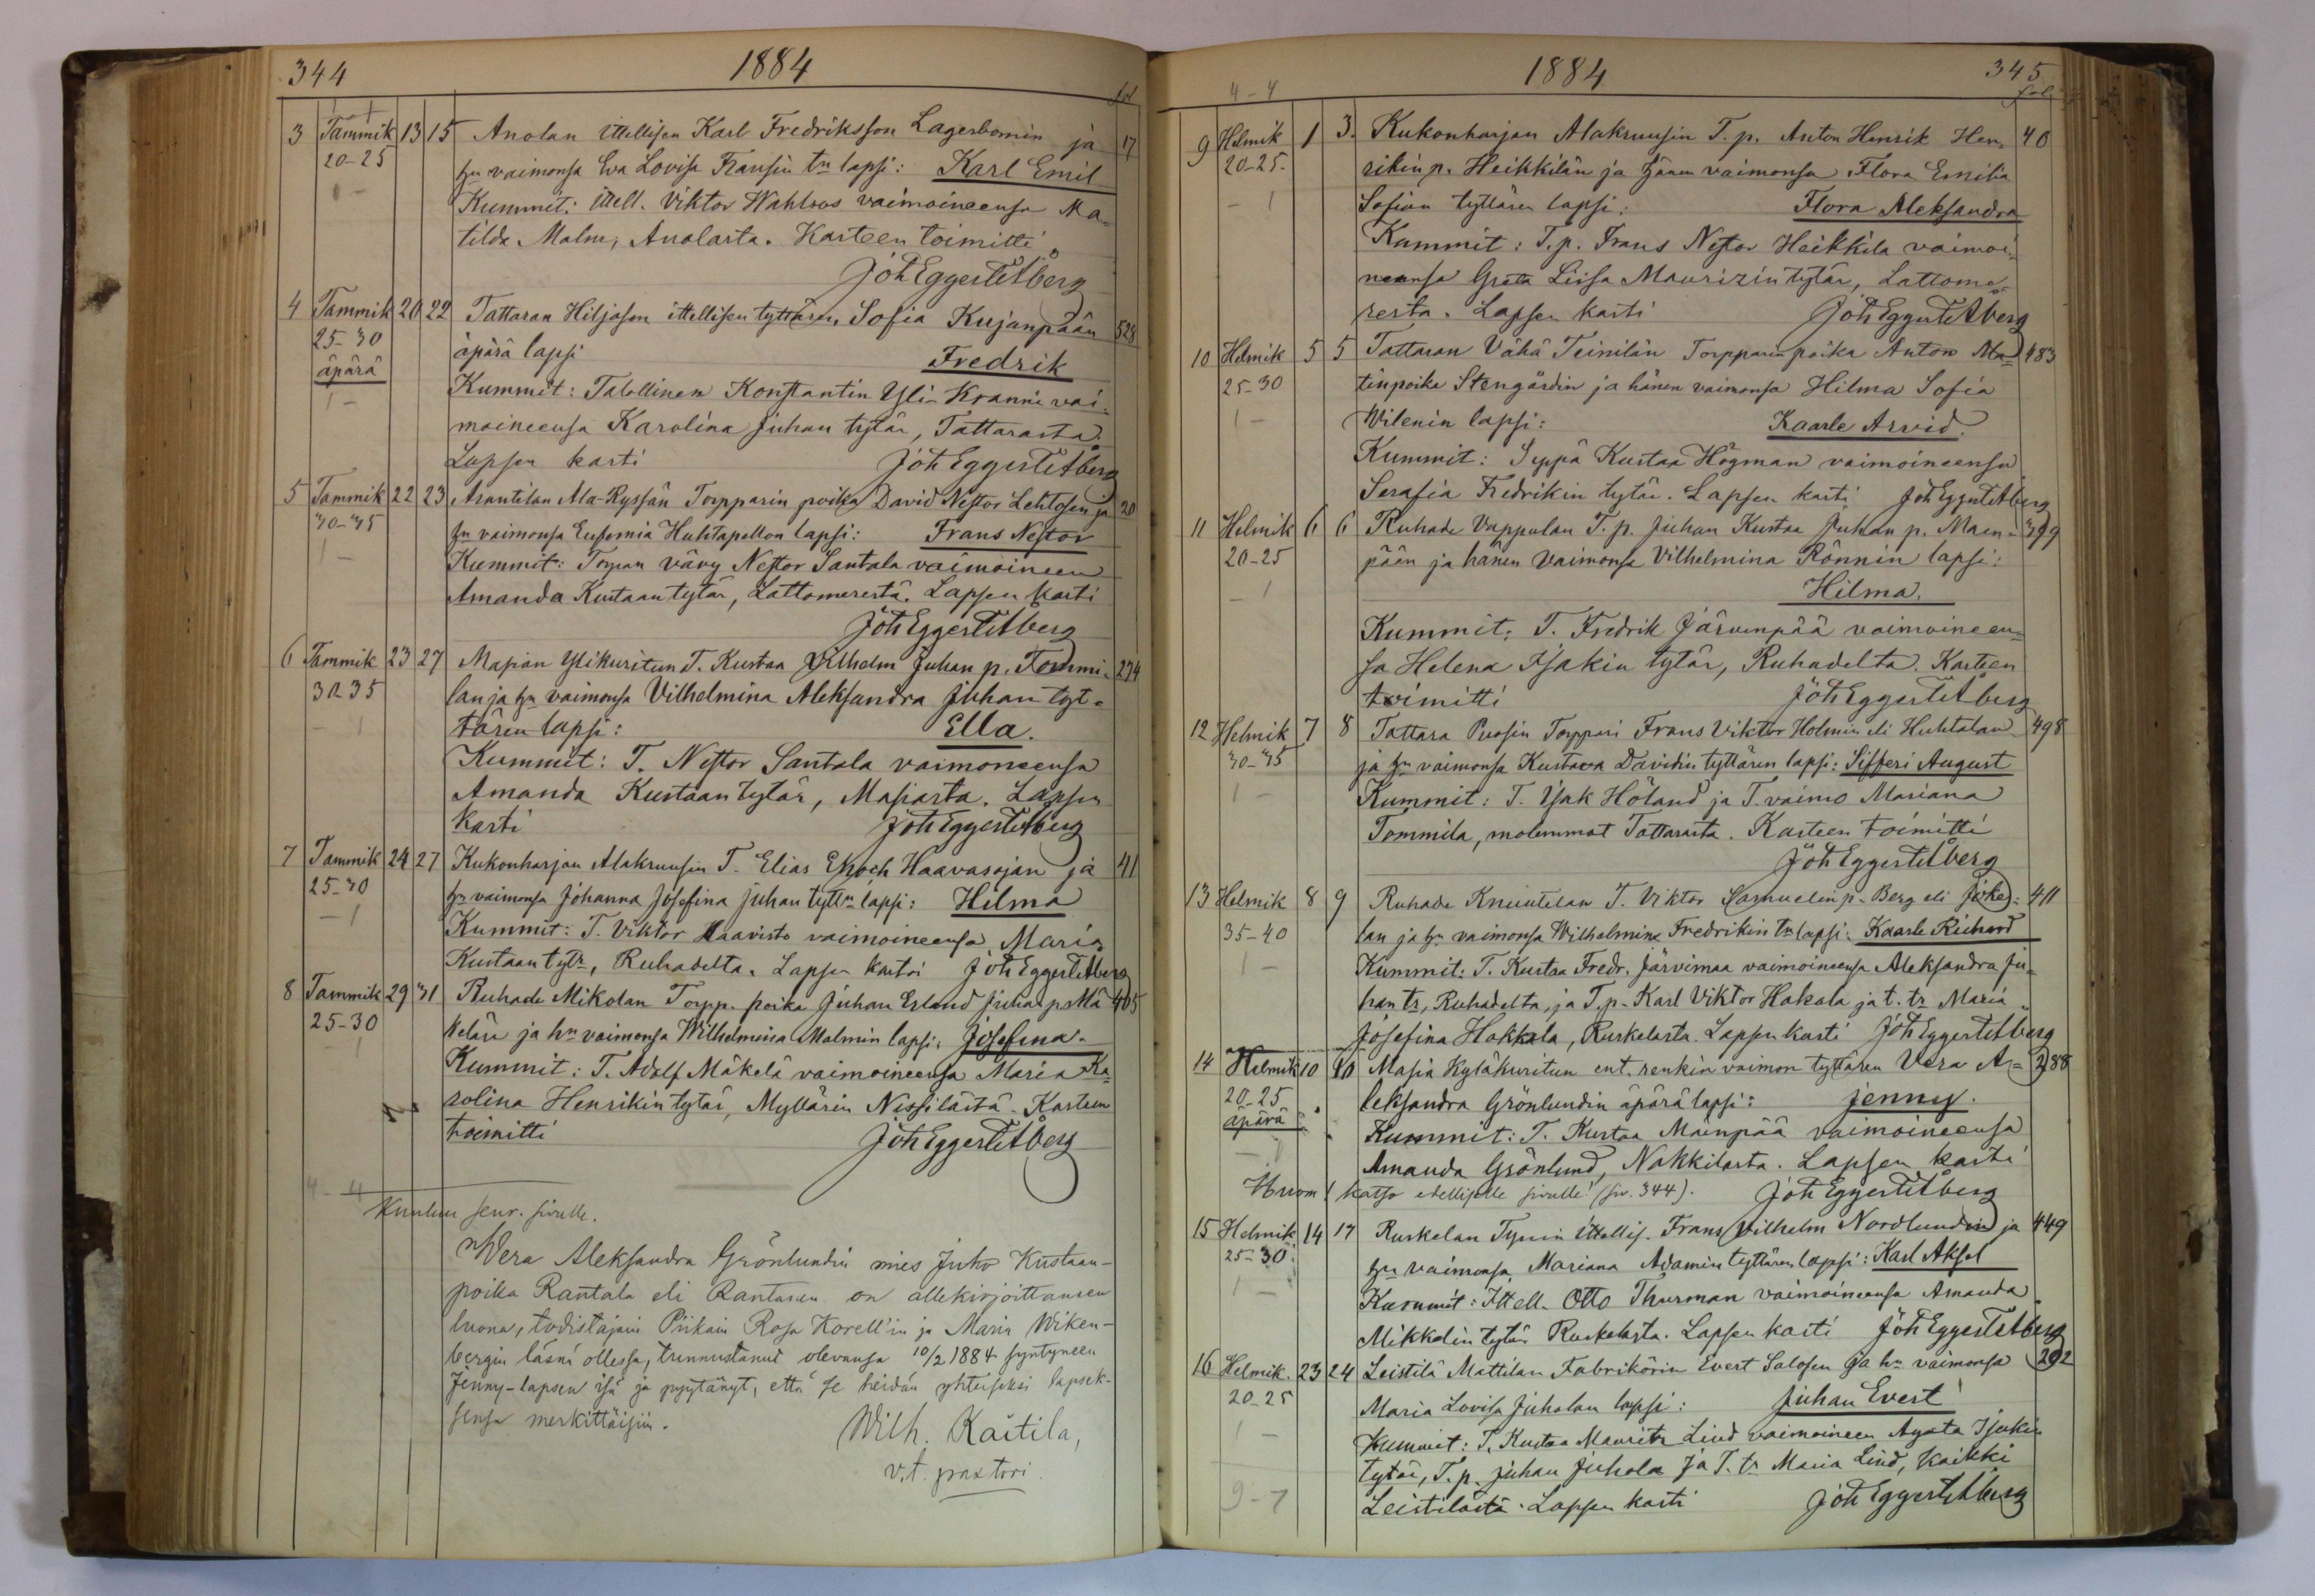 344
1884
fol
3 Tammik 13 15 Anolan ittellisen Karl Fredriksson Lagerbomin ja 17
20-25 hn vaimonsa Eva Lovisa Fransin tn lapsi: Karl Emil
1 -
Kummit: ittell. Viktor Wahlroos vaimoineensa Ma-
tilda Malm, Anolasta. Kasteen toimitti
Joh Eggert Etberg
4 Tammik 20 22 Tattaran Hiljasen ittellisen tyttären Sofia Kujanpään 528
25-30 äpärä lapsi Fredrik
äpärä
1 -
Kummit: Talollinen Konstantin Yli-Kranni vai-
moineensa Karolina Juhan tytär, Tattarasta.
Lapsen kasti Joh Eggert Etberg
5 Tammik 22 23 Arantilan Ala-Ryssän Torpparin poika David Nestor Lehtosen ja 20
30-35 hn vaimonsa Eufemia Huhtapellon lapsi: Frans Nestor
1 -
Kummit: Torpan vävy Nestor Santala vaimoineen
Amanda Kustaan tytär, Lattomerestä. Lapsen kasti
Joh Eggert Etberg
6 Tammik 23 27 Masian Ylikuritun T. Kustaa Vilhelm Juhan p. Tommi- 274
30 35 lan ja hn vaimonsa Vilhelmina Aleksandra Juhan tyt-
- 1
tären lapsi: Ella.
Kummit: T. Nestor Santala vaimoneensa
Amanda Kustaan tytär, Masiasta. Lapsen
kasti Joh Eggert Etberg
7 Tammik 24 27 Kukonharjan Alakruusin T. Elias Enoch Haavasojan ja 41
25-30 hn vaimonsa Johanna Josefina Juhan tyttn lapsi: Helma
- 1
Kummit: T. Viktor Haavisto vaimoineensa Maria
Kustaan tytr, Ruhadelta. Lapsen kastoi Joh Eggert Etberg
8 Tammik 29 31 Ruhade Mikolan Torpp. poika Juhan Erland Juhan p. Mä- 405
25-30 kelän ja hn vaimonsa Wilhelmina Malmin lapsi: Josefina.
- 1
Kummit: T. Adolf Mäkelä vaimoineensa Maria Ka-
rolina Henrikin tytär, Myllärin Nissilästä. Kasteen
toimitti Joh Eggert Etberg
4 - 4
Kuuluu seur. sivulle.
Wera Aleksandra Grönlundin mies Juho Kustaan-
poika Rantala eli Rantanen on allekirjoittaneen
luona, todistajain Piikain Rosa Korell'in ja Maria Wiken-
bergin läsnä ollessa, tunnustanut olevansa 10/2 1884 syntyneen
Jenny-lapsen isä ja pyytänyt, että se heidän yhteiseksi lapsek-
sensa merkittäisiin.
Wilh. Kaitila,
v.t. pastori.
1884
345
4 - 4
fol.
9 Helmik 1 3. Kukonharjan Alakruusin T. p. Anton Henrik Hen- 40
20-25. rikin p. Heikkilän ja hänen vaimonsa Flora Emilia
- 1
Sofian tyttären lapsi: Flora Aleksandra
Kummit: T. p. Frans Nestor Heikkila vaimoi-
neensa Greta Liisa Maurizin tytär, Lattome-
resta. Lapsen kasti Joh Eggert Etberg
10 Helmik 5 5 Tattaran Vähä Teinilän Torpparin poika Anton Ma- 483
25-30 tinpoika Stengårdin ja hänen vaimonsa Hilma Sofia
1 -
Wilenin lapsi: Kaarle Arvid.
Kummit: Seppä Kustaa Högman vaimoineensa
Serafia Fredrikin tytär. Lapsen kasti Joh Eggert Etberg
11 Helmik 6 6 Ruhade Vappulan T. p. Juhan Kustaa Juhan p. Maen- 399
20-25 pään ja hänen vaimonsa Vilhelmina Rönnin lapsi:
- 1
Hilma.
Kummit: T. Fredrik Järvenpää vaimoineen-
sa Helena Isakin tytär, Ruhadelta. Kasteen
toimitti Joh Eggert Etberg
12 Helmik 7 8 Tattara Puosin Torppari Frans Viktor Holmin eli Huhtalan 498
30-35 ja hn vaimonsa Kustaava Davidin tyttären lapsi: Sifferi August
1 -
Kummit: T. Isak Höland ja T. vaimo Mariana
Tommila, molemmat Tattarasta. Kasteen toimitti
Joh Eggert Etberg
13 Helmik 8 9 Ruhade Knuutelan T. Viktor Samuelin p. Berg eli Joke- 411
35-40 lan ja hn vaimonsa Wilhelmina Fredrikin tn lapsi: Kaarle Richard
1 -
Kummit: T. Kustaa Fredr. Järvimaa vaimoineensa Aleksandra Ju-
han tr, Ruhadelta, ja T.p. Karl Viktor Hakala ja t. tr Maria
Josefina Hakkala, Ruskelasta. Lapsen kasti Joh Eggert Etberg
14 Helmik 10 10 Masia Kyläkuritun ent. renkin vaimon tyttären Vera A- 288
20-25 leksandra Grönlundin äpärä lapsi: Jenny.
äpärä
- 1
Kummit: T. Kustaa Mäenpää vaimoineensa
Amanda Grönlund, Nakkilasta. Lapsen kasti
Huom! katso edelliselle sivulle! (siv. 344). Joh Eggert Etberg
15 Helmik 14 17 Ruskelan Tynin ittellis. Frans Vilhelm Nordlundin ja 449
25-30 hn vaimonsa Mariana Adamin tyttären lapsi: Karl Aksel
1 -
Kummit: Ittell. Otto Thurman vaimoineensa Amanda
Mikkelin tytär Ruskelasta. Lapsen kasti Joh Eggert Etberg
16 Helmik. 23 24 Leistilä Mattilan Fabrikörin Evert Salosen ja hn vaimonsa 292
20-25 Maria Lovisa Juholan lapsi: Juhan Evert
1 -
Kummit: T. Kustaa Mauritz Lind vaimoineen Agata Isakin
tytär, T. p. Juhan Juhola ja T. tr Maria Lind, kaikki
9-7
Leistilästä. Lapsen kasti Joh Eggert Etberg